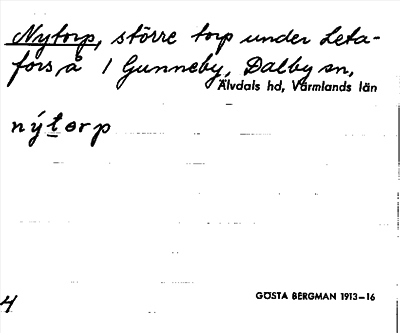 Nytorp, större torp under Leta-
fors å 1 Gunneby, Dalby sn,
Älvdals hd, Värmlands län
nýtorp
GÖSTA BERGMAN 1913-16
4